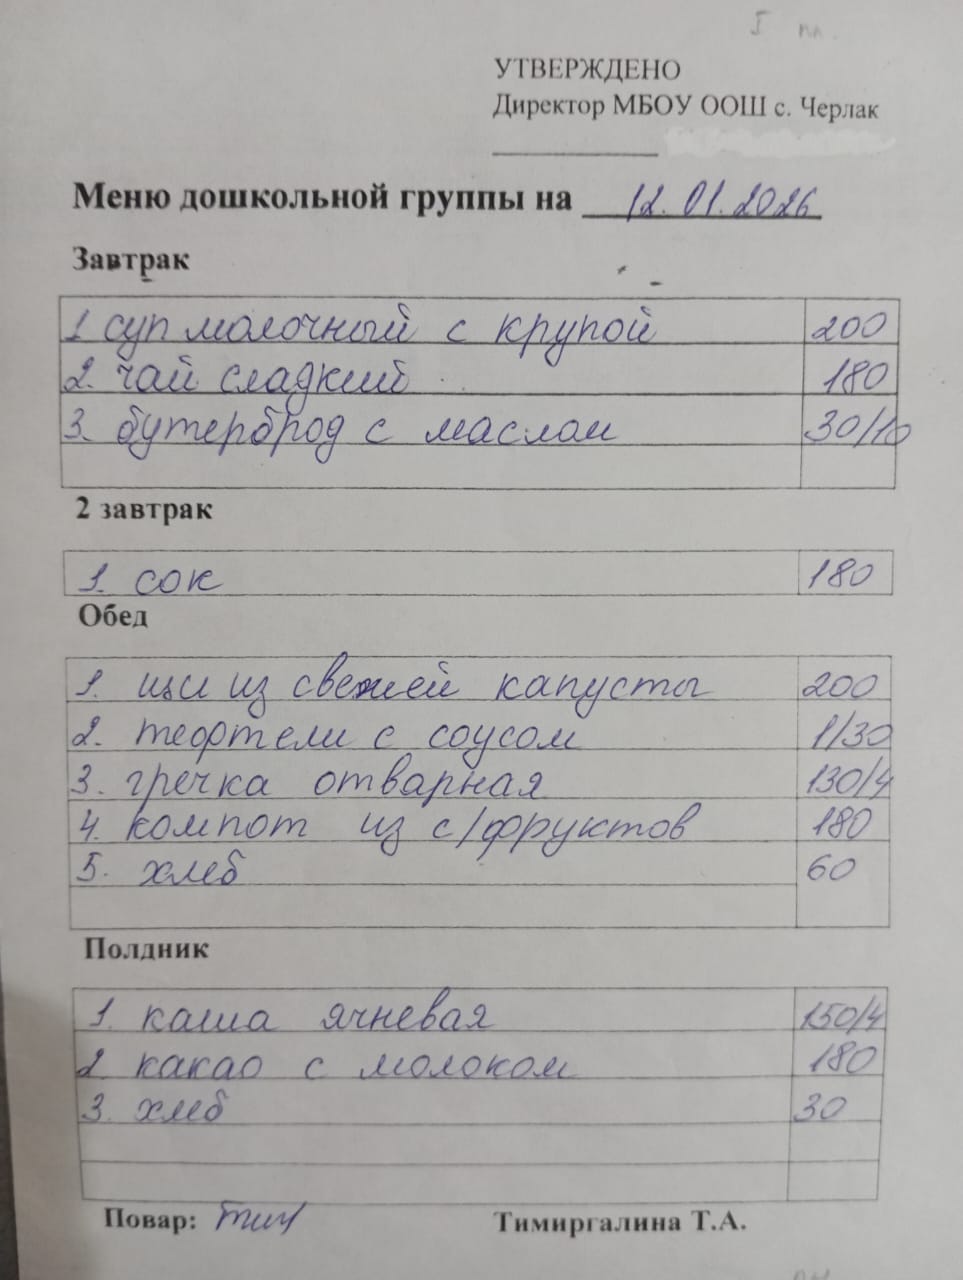 I пл.
УТВЕРЖДЕНО
Директор МБОУ ООШ с. Черлак
Меню дошкольной группы на 12.01.2026
Завтрак
1 суп молочный с крупой 200
2. чай сладкий 180
3. бутерброд с маслом 30/10
2 завтрак
1. сок 180
Обед
1. щи из свежей капусты 200
2. тефтели с соусом 1/30
3. гречка отварная 130/4
4. компот из с/фруктов 180
5. хлеб 60
Полдник
1. каша ячневая 150/4
2 какао с молоком 180
3. хлеб 30
Повар: Тимиргалина Т.А.